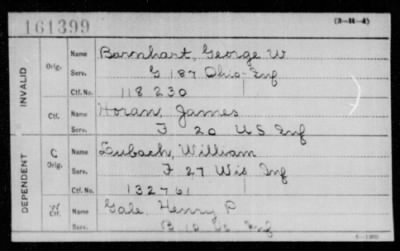 161399
(3-11-4)
INVALID
Orig. Name Barnhart, George W
Serv. G 187 Ohio Inf
Ctf. No. 118230
Ctf. Name Horan, James
Serv. F 20 US Inf
DEPENDENT
C Orig. Name Laubach, William
Serv. F 27 Wis Inf
Ctf. No. 132761
W Ctf. Name Gale, Henry P
Serv. B 12 Inf